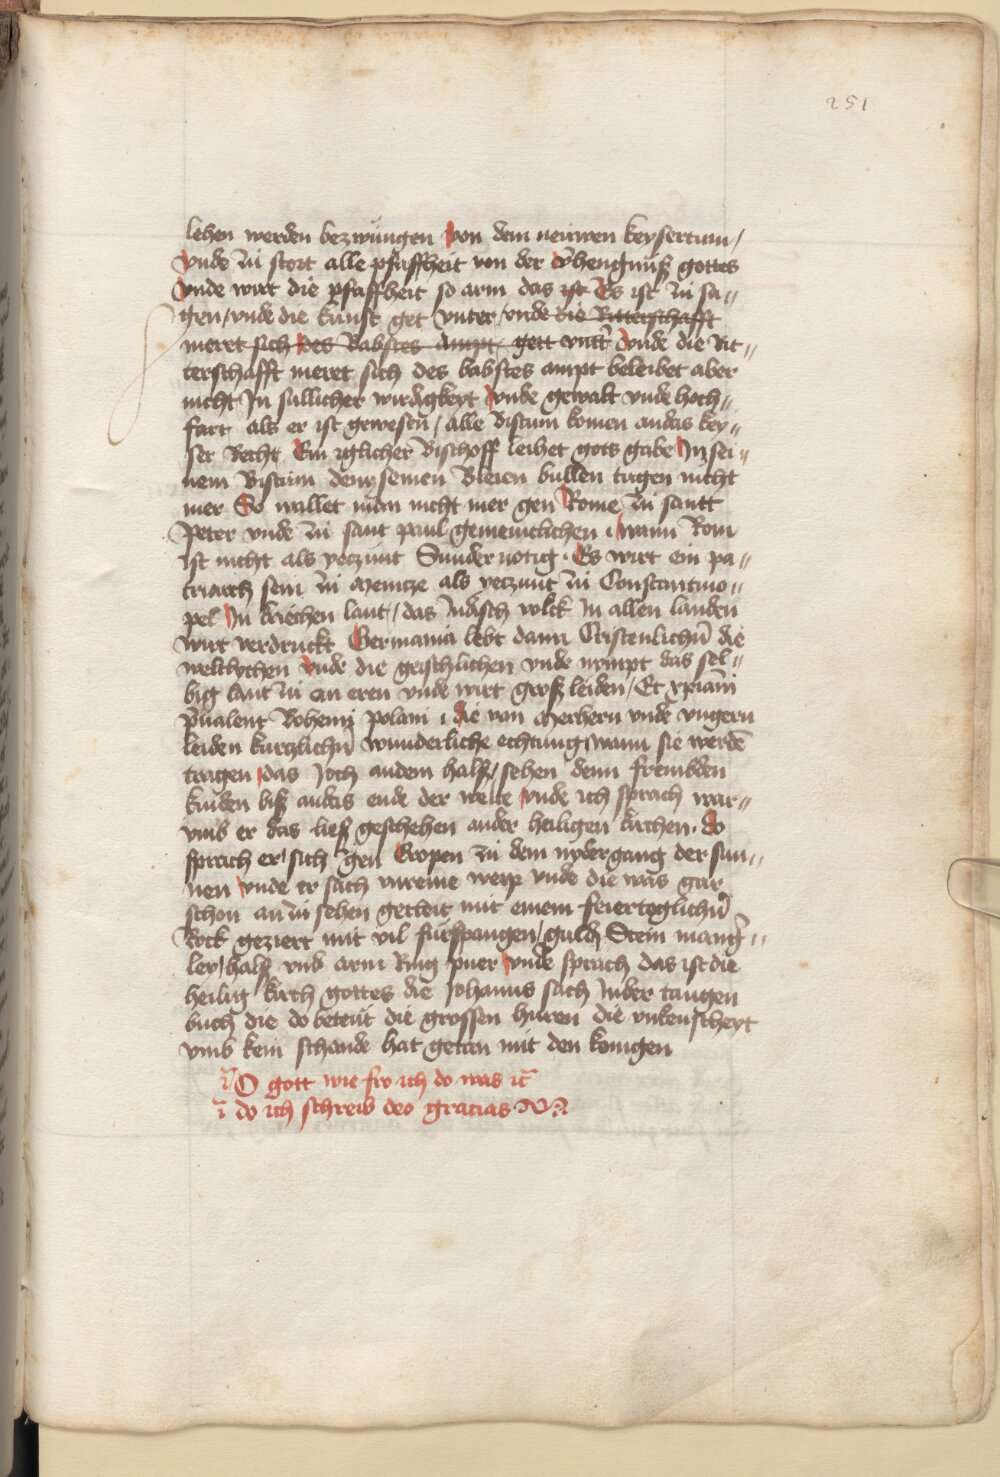 251
lehen werden bezwüngen von dem neüwen keysertum /
vnde zu stort alle pfaffheit von der v̉hengnüß gottes
vnde wirt die pfaffheit so arm das ist Es ist zu sa„
gen / vnde die kunst get vnter / vnde die Ritterschafft
meret sich des Babstes ampt / gett vntt̉ vnde die Rit„
terschafft meret sich des babstes ampt beleibet aber
nicht Jn sullicher wirdigkeyt vnde gewalt vnde hoch„
fart als er ist gewesen̄ / alle Bistum komen an das key„
ser Recht Ein iglicher Bischoff leihet gots gabe Jn sei„
nem Bistum denn seinen Bleien bullen tugen nicht
mer So wallet man nicht mer gen Rome zu santt
Peter vnde zu sant paul gemeinclichen wann Rom
ist nicht als yeczunt Sunder notig . Es wirt ein pa„
triarch sein zu Mentze als yeczunt zu Constantino„
pel Jn kriechen lant / das Judisch volck Jn allen landen
wirt verdruckt Germania lebt dann Cristenlichn̄ die
weltlychen vnde die geischlichen vnde nympt das sel„
big lant zu an eren vnde wirt groß leiden / Et xpiani
p̄ualent Bohemi polani die von Merhern vnde vngern
leiden kurczlichn̄ wunderliche echtung wann sie werdē
tragen das Joch an dem halß / sehen denn frembden
kinden biß an das ende der welte vnde ich sprach war„
vmb er das ließ geschehen an der heiligen kirchen . do
sprach er sich gen Eropen zu dem nydergang der sun„
nen vnde er sach vnreine weyp vnde die was gar
schon an zu sehen gecleit mit einem feiertoglichn̄
Rock geziert mit vil fürspangen / guldn̄ Stein mang̉„
ley / halß vnd arm Ring puer vnde sprach das ist die
heilig kirch gottes die Johannes sach Jn der taugen
buch die do beteüt die grossen huren die vnkeuscheyt
vmb kein schande hat getan mit den konigen
O gott wie fro ich do was
do ich schreib deo gracias